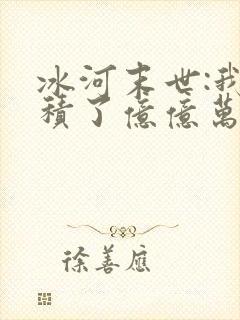 冰河末世:我
積了億億萬
徐善應